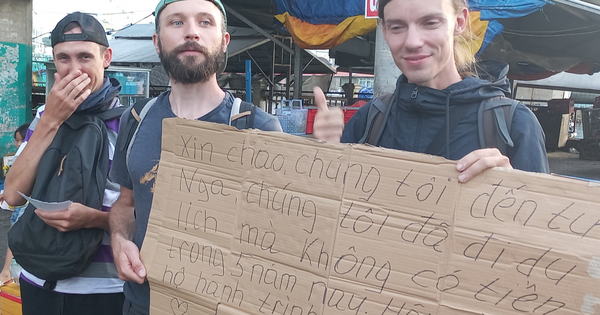 Xin chào, chúng tôi đến từ
Nga, chúng tôi đã đi du
lịch mà không có tiền
trong 5 năm nay. Hãy
hộ hành trình